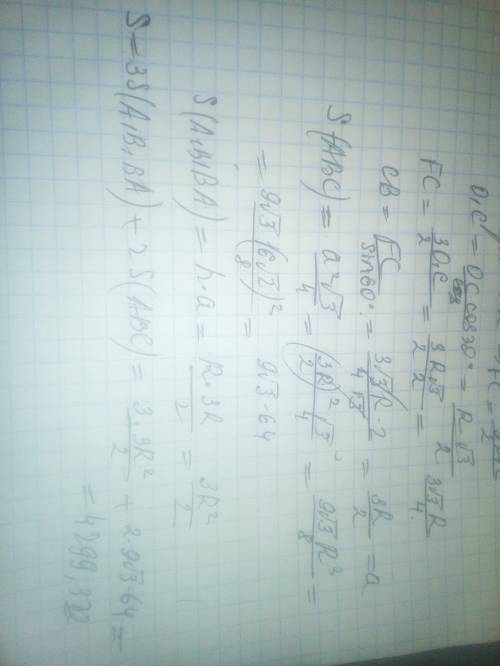 O₁C = OC cos30° = R√3/2
FC = 3O₁C/2 = 3R√3/2·2 = 3√3R/4
CB = FC/sin60° = 3√3R·2/4√3 = 3R/2 = a
S(ABC) = a²√3/4 = (3R/2)²√3/4 = 9√3R²/8 =
= 9√3(6√2)²/8 = 9√3·64
S(A₁B₁BA) = h·a = R·3R/2 = 3R²/2
S = 3S(A₁B₁BA) + 2S(ABC) = 3·3R²/2 + 2·9√3·64 =
= 4299,372